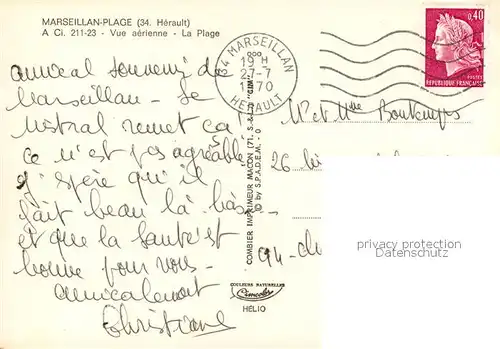 MARSEILLAN-PLAGE (34. Hérault)
A Ci. 211-23 - Vue aérienne - La Plage
amical souvenir de
Marseillan - Le
Mistral remet ça
ce n'est pas agréable
j'espère qu'il
fait beau là-bas
et que la santé est
bonne pour vous -
amicalement
Christiane
34 MARSEILLAN
19 H
27-7
1970
HERAULT
0,40
POSTES
REPUBLIQUE FRANÇAISE
Mr et Mme
26
94-
COMBIER IMPRIMEUR MACON (71. S.-&-L.) "CIM"
© by S.P.A.D.E.M. - O
COULEURS NATURELLES
Cimcolor
HELIO
privacy protection
Datenschutz